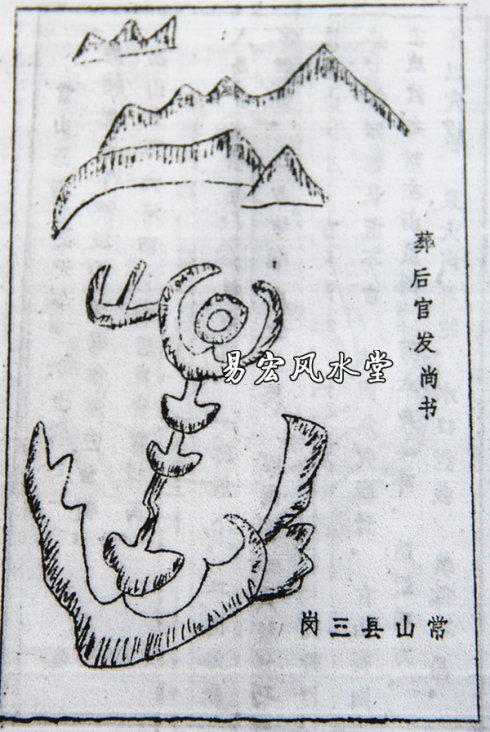 葬后官发尚书
易宏风水堂
常山县三岗